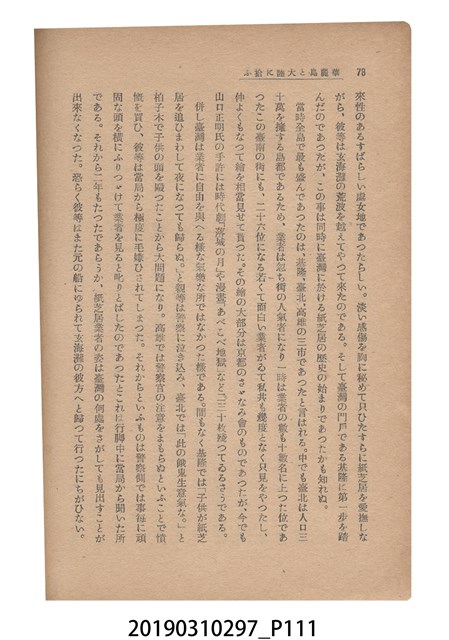 73　華麗島と大陸に拾ふ
來性のあるすばらしい處女地であつたらしい。淡い感傷を胸に秘めて只ひたすらに紙芝居を愛撫しな
がら、彼等は玄海灘の荒波を越えてやつて來たのである。そして臺灣の門戸である基隆に第一步を踏
んだのであつたが、この事は同時に臺灣に於ける紙芝居の歷史の始まりであつたかも知れぬ。
當時全島で最も盛んであつたのは、基隆、臺北、高雄の三市であつたと言はれる。中でも臺北は人口三
十萬を擁する島都であるため、業者は忽ち街の人氣者になり一時は業者の數も十數名に上つた位であ
つたこの臺南の街にも、二十六位になる若くて面白い業者がゐて私共も幾度となく只見をやつたし、
仲よくもなつて繪を相當見せて貰つた。その繪の大部分は京都のさざなみ會のものであつたが、今でも
山口正明氏の手許には時代劇「落城の月」や漫畫「あべこべ地獄」など二三十枚殘つてゐるさうである。
併し臺灣は業者に自由を與へる樣な氣樂な所ではなかつた樣である。間もなく基隆では「子供が紙芝
居を追ひまわして夜になつても歸らぬ。」と親等は警察に泣き込み、臺北では「此の餓鬼生意氣な。」と
柏子木で子供の頭を毆つたことから大問題になり。高雄では警察官の注意をまもらぬといふことで憤
慨を買ひ、彼等は當局から極度に毛嫌ひされてしまつた。それからといふものは警察側では事每に頑
固な頭を橫にふりつゞけて業者を見ると叱りとばしたのであつたとこれは行脚中に當局から聞いた所
である。それから二年もたつたであらうか、紙芝居業者の姿は臺灣の何處をさがしても見出すことが
出來なくなつた。恐らく彼等はまた元の船にゆられて玄海灘の彼方へと歸つて行つたにちがひない。
20190310297_P111